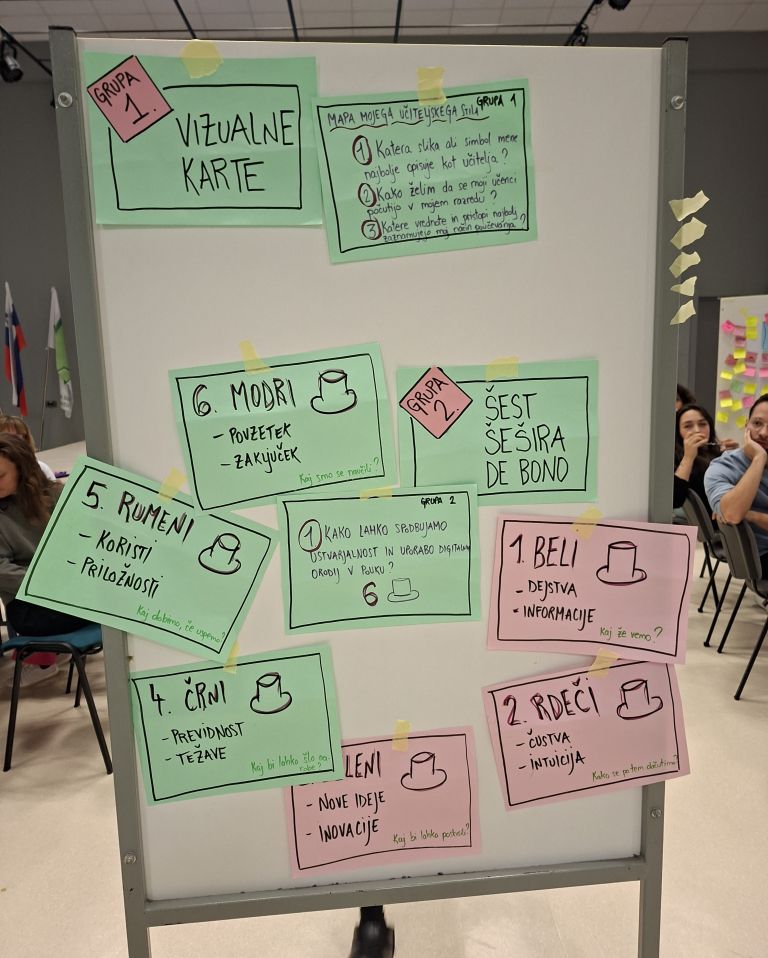 GRUPA
1.
VIZUALNE
KARTE
GRUPA 1
MAPA MOJEGA UČITELJSKEGA STILA
1 Katera slika ali simbol mene
najbolje opisuje kot učitelja?
2 Kako želim da se moji učenci
počutijo v mojem razredu?
3 Katere vrednote in pristopi najbolj
zaznamujejo moj način poučevanja?
6. MODRI
- POVZETEK
- ZAKLJUČEK
Kaj smo se naučili?
GRUPA
2.
ŠEST
ŠEŠIRA
DE BONO
5. RUMENI
- KORISTI
- PRILOŽNOSTI
Kaj dobimo, če uspemo?
GRUPA 2
1 KAKO LAHKO SPODBUJAMO
USTVARJALNOST IN UPORABO DIGITALNIH
ORODIJ V POUKU?
6
1. BELI
- DEJSTVA
- INFORMACIJE
Kaj že vemo?
4. ČRNI
- PREVIDNOST
- TEŽAVE
Kaj bi lahko šlo na-
robe?
2. RDEČI
- ČUSTVA
- INTUICIJA
Kako se pri tem
LENI
- NOVE IDEJE
- INOVACIJE
Kaj bi lahko